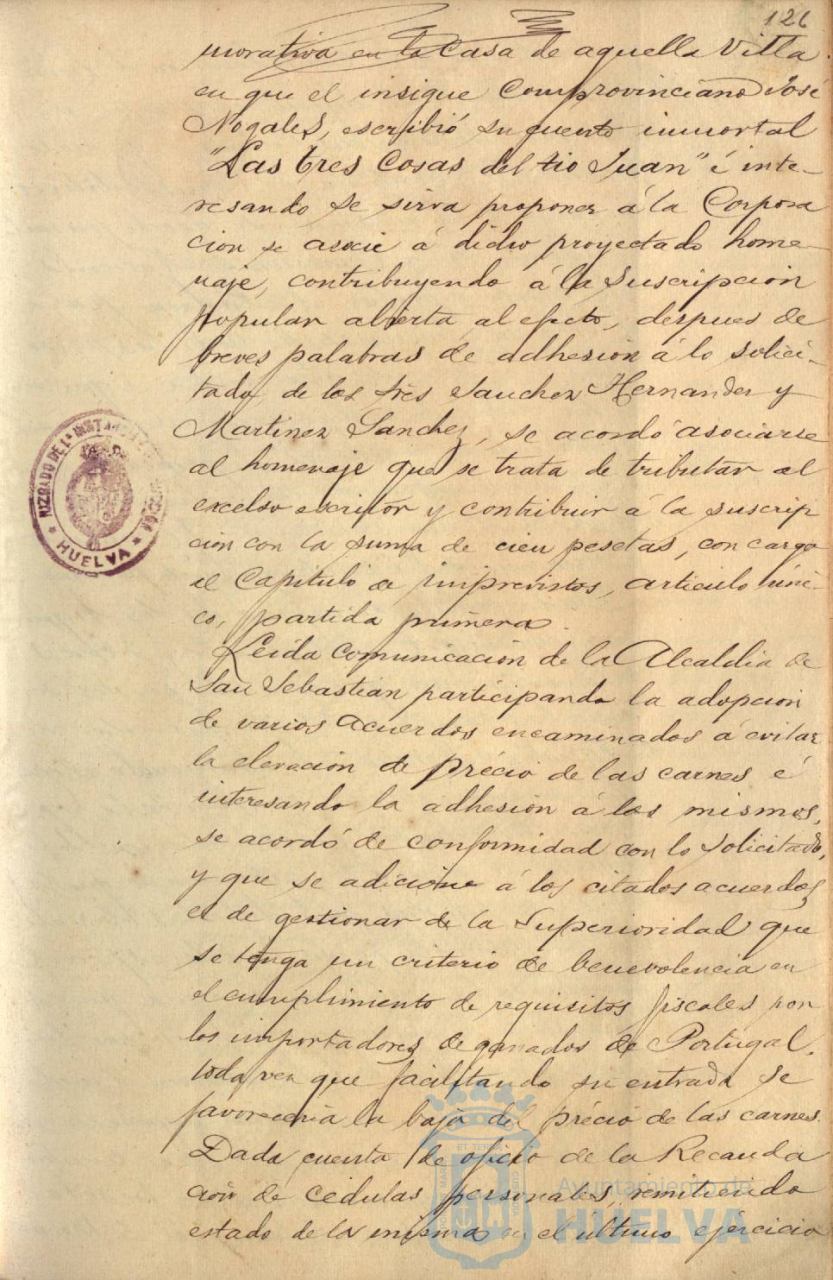 126
morativa en la Casa de aquella Villa
en que el insigne Comprovinciano José
Nogales, escribió su cuento inmortal
"Las tres Cosas del tio Juan" é inte-
resando se sirva proponer á la Corpora
cion se asocie á dicho proyectado home-
naje, contribuyendo á la suscripción
popular abierta al efecto, despues de
breves palabras de adhesión á lo solici-
tado, de los Sres Sanchez Hernandez y
Martinez Sanchez, se acordó asociarse
al homenaje que se trata de tributar al
excelso escritor y contribuir á la suscrip
ción con la suma de cien pesetas, con cargo
al Capítulo de Imprevistos, artículo úni-
co, partida primera.
Leida comunicación de la Alcaldía de
San Sebastián participando la adopción
de varios acuerdos encaminados á evitar
la elevación de précio de las carnes é
interesando la adhesión á los mismos,
se acordó de conformidad con lo solicitado,
y que se adicione á los citados acuerdos
el de gestionar de la Superioridad que
se tenga un criterio de benevolencia en
el cumplimiento de requisitos fiscales por
los importadores de ganados de Portugal,
toda vez que facilitando su entrada se
favorecería la baja del précio de las carnes.
Dada cuenta de oficio de la Recauda
ción de cédulas personales, remitiendo
estado de la misma en el último ejercicio
JUZGADO DE 1ª INSTANCIA
HUELVA
Ayuntamiento de
HUELVA